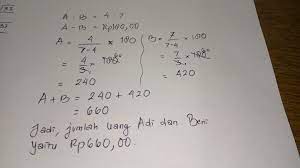 A : B = 4 : 7
A - B = Rp180,00
A = 4/7-4 × 180
= 4/3 × 180 60
= 240
B = 7/7-4 × 180
= 7/3 × 180 60
= 420
A + B = 240 + 420
= 660
Jadi, jumlah uang Adi dan Beni
yaitu Rp660,00.